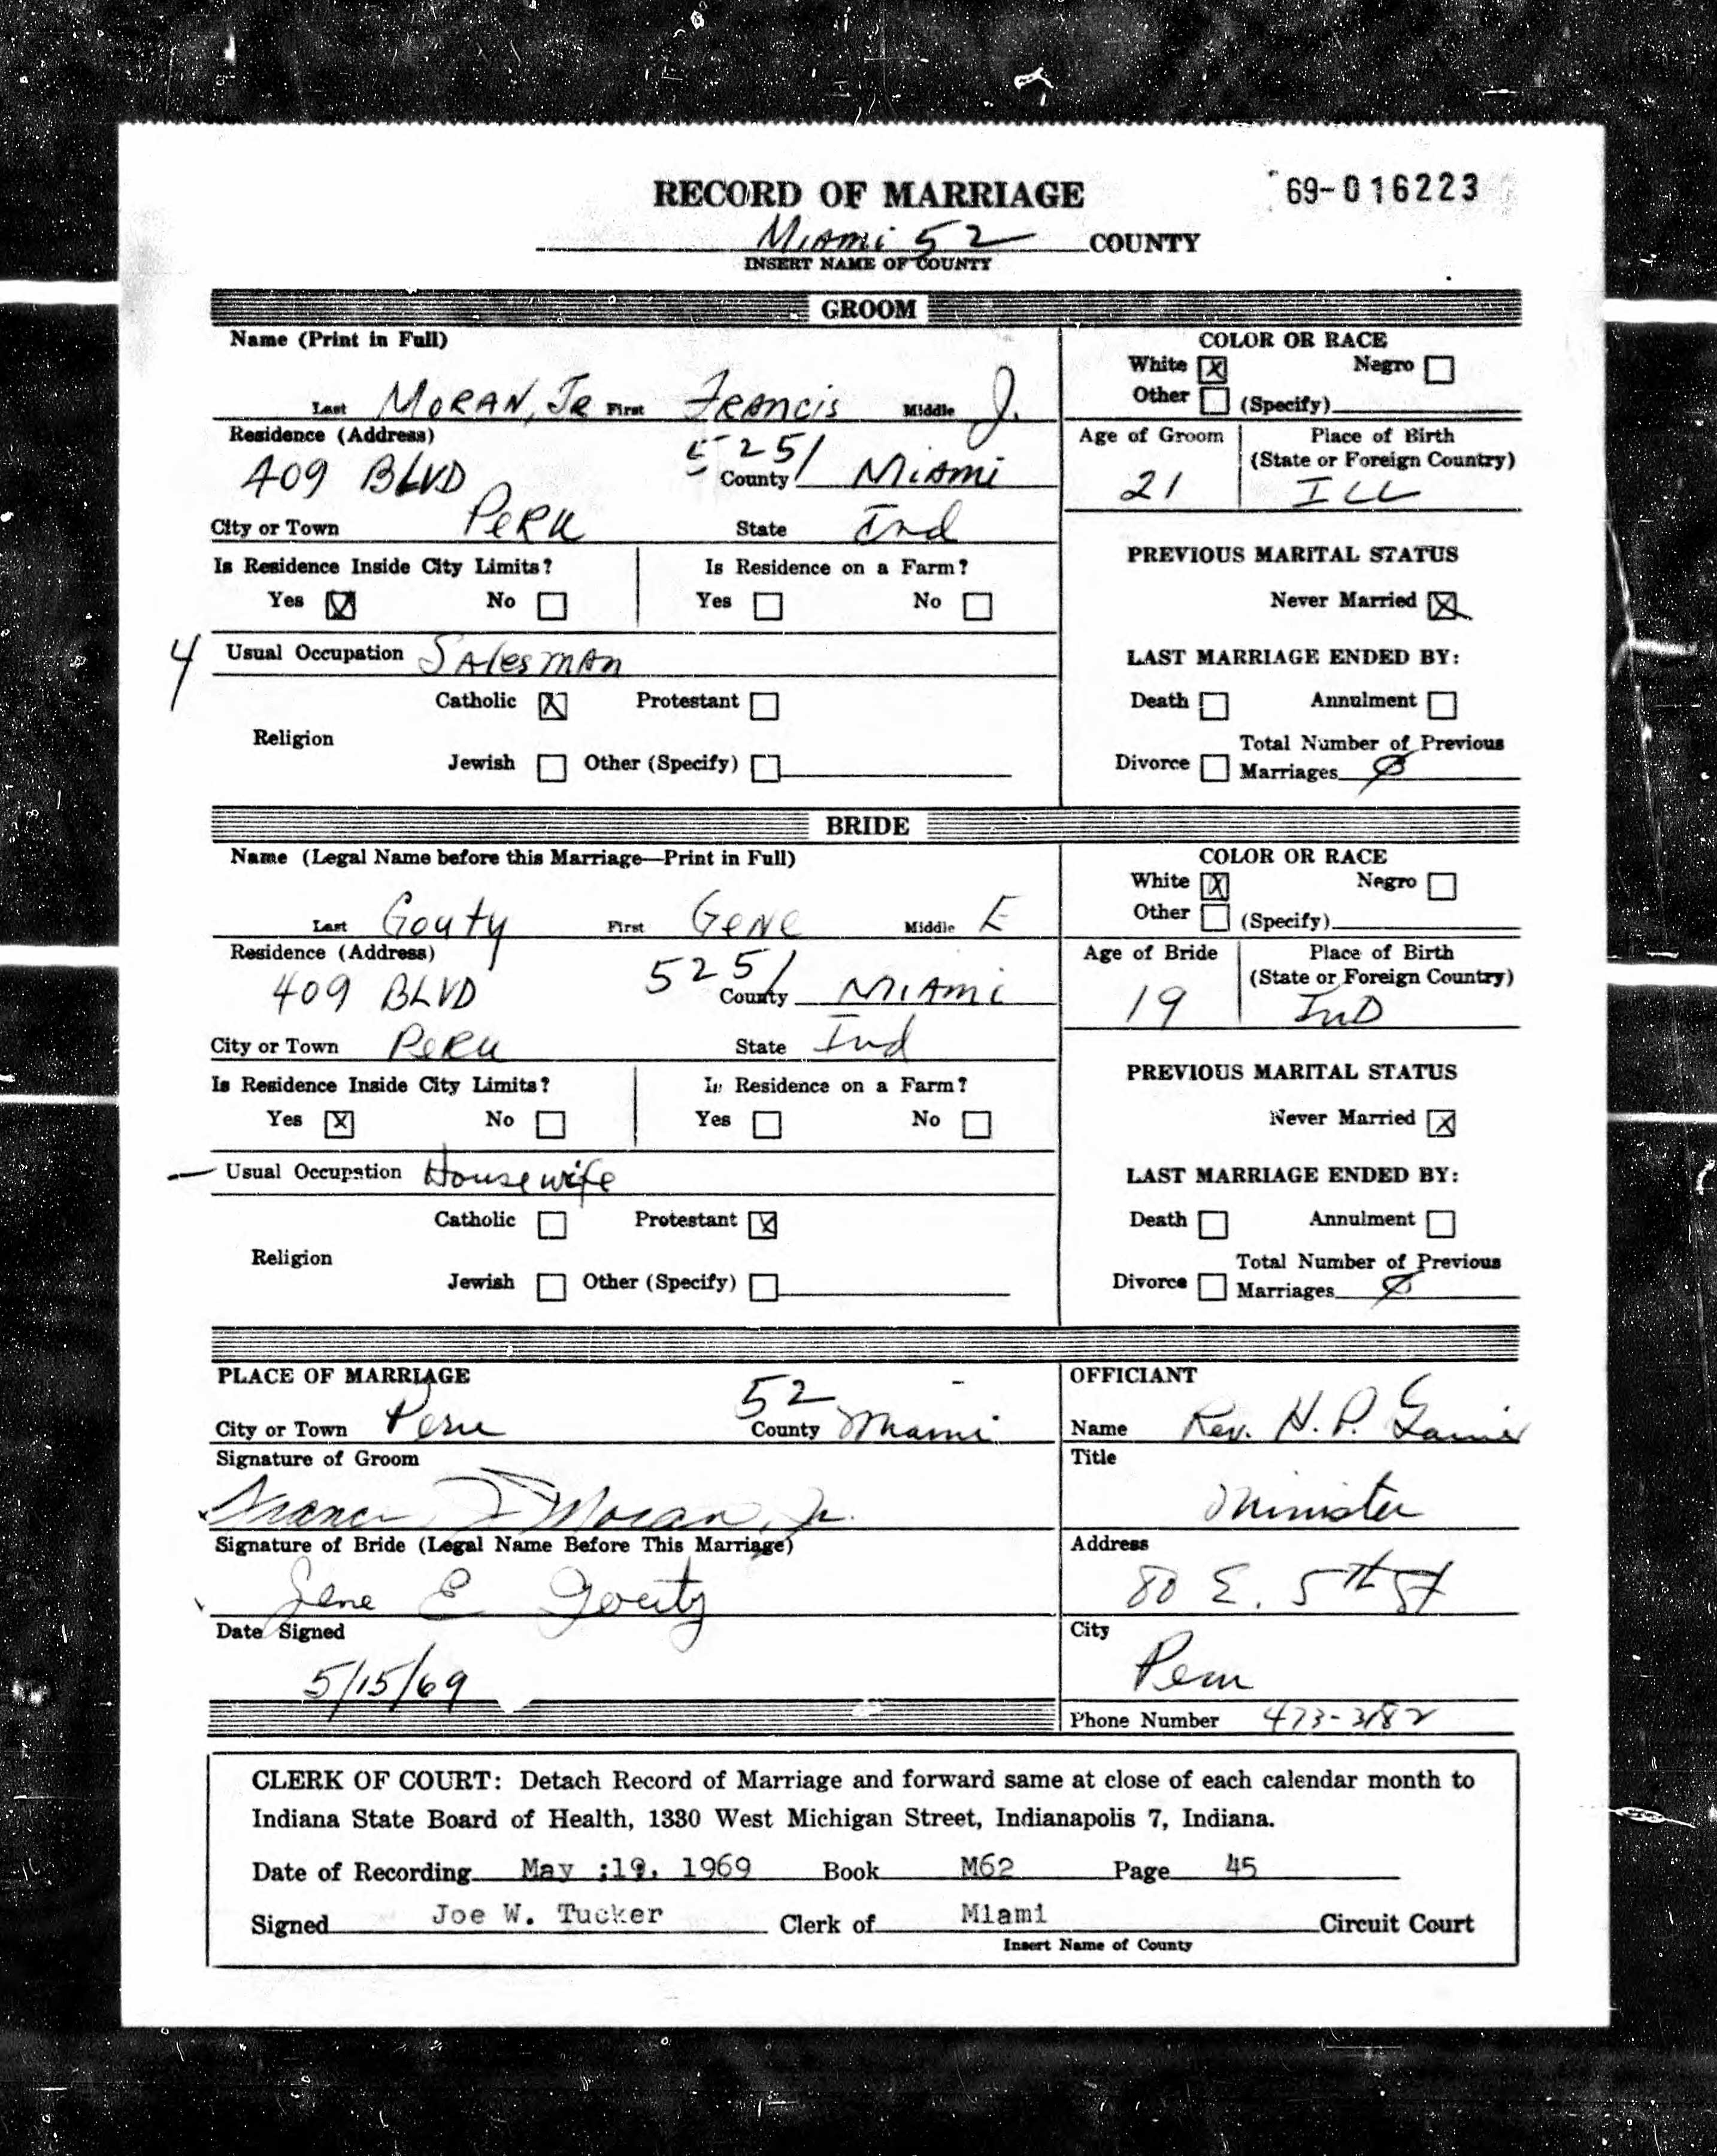 RECORD OF MARRIAGE
69-016223
Miami 52 COUNTY
INSERT NAME OF COUNTY
GROOM
Name (Print in Full)
Last MORAN, JR First FRANCIS Middle J.
COLOR OR RACE
White X Negro
Other (Specify)
Residence (Address)
409 BLVD 5251 County MIAMI
Age of Groom 21
Place of Birth
(State or Foreign Country)
ILL
City or Town PERU State Ind
Is Residence Inside City Limits? Is Residence on a Farm?
Yes X No Yes No
PREVIOUS MARITAL STATUS
Never Married X
4 Usual Occupation SALESMAN
LAST MARRIAGE ENDED BY:
Catholic X Protestant
Death Annulment
Religion
Jewish Other (Specify)
Total Number of Previous
Divorce Marriages Ø
BRIDE
Name (Legal Name before this Marriage—Print in Full)
Last Gouty First GENE Middle E
COLOR OR RACE
White X Negro
Other (Specify)
Residence (Address)
409 BLVD 5251 County MIAMI
Age of Bride 19
Place of Birth
(State or Foreign Country)
IND
City or Town PERU State Ind
Is Residence Inside City Limits? Is Residence on a Farm?
Yes X No Yes No
PREVIOUS MARITAL STATUS
Never Married X
— Usual Occupation Housewife
LAST MARRIAGE ENDED BY:
Catholic Protestant X
Death Annulment
Religion
Jewish Other (Specify)
Total Number of Previous
Divorce Marriages Ø
PLACE OF MARRIAGE
City or Town Peru 52 County Miami
Signature of Groom
Francis J Moran, Jr.
Signature of Bride (Legal Name Before This Marriage)
Gene E Gouty
Date Signed
5/15/69
OFFICIANT
Name Rev. H. P.
Title
Minister
Address
80 E. 5th St
City
Peru
Phone Number 473-3182
CLERK OF COURT: Detach Record of Marriage and forward same at close of each calendar month to
Indiana State Board of Health, 1330 West Michigan Street, Indianapolis 7, Indiana.
Date of Recording May :19, 1969 Book M62 Page 45
Signed Joe W. Tucker Clerk of Miami Circuit Court
Insert Name of County